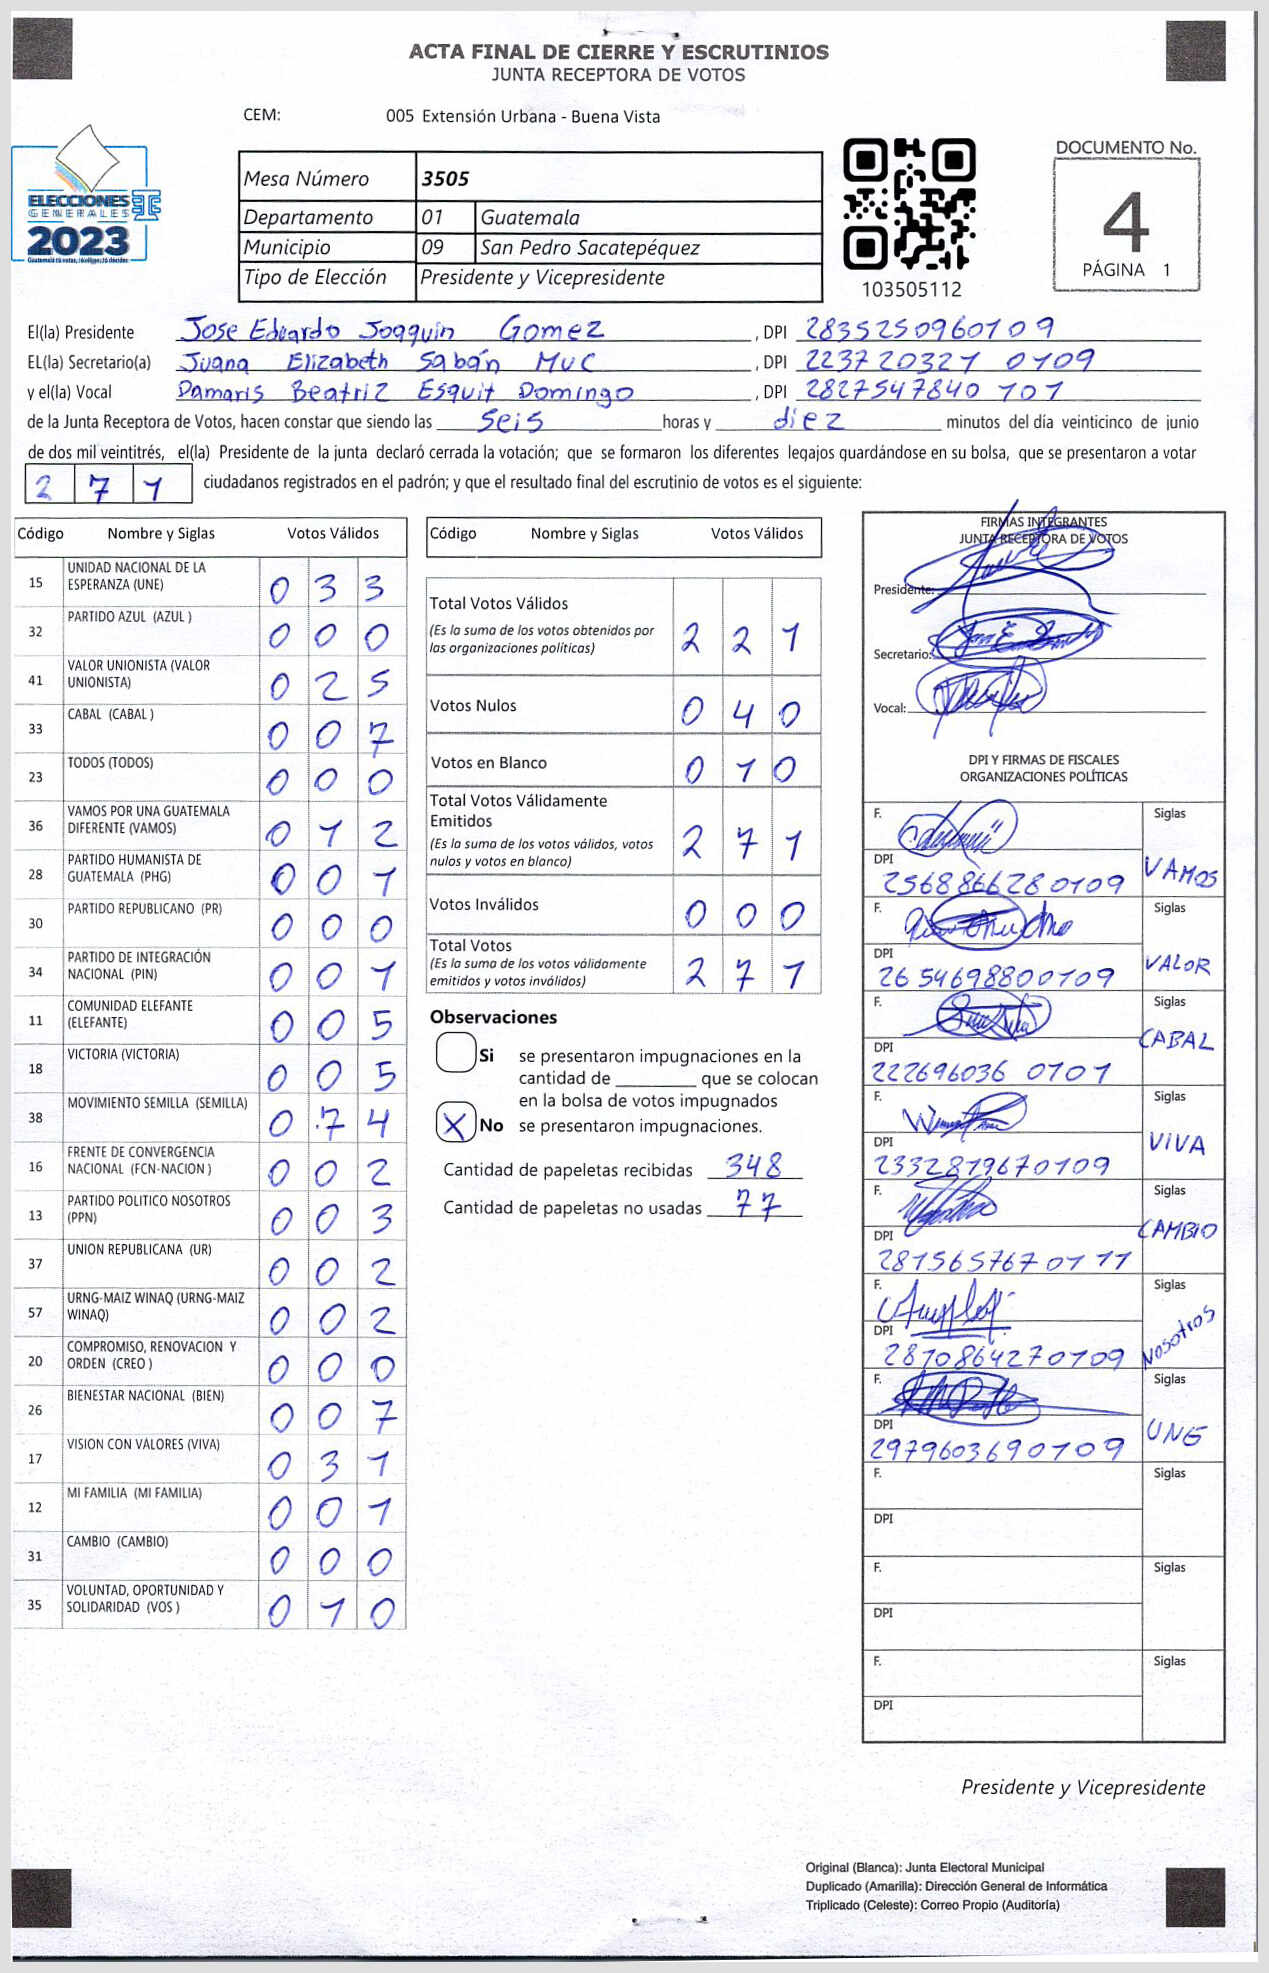 ACTA FINAL DE CIERRE Y ESCRUTINIOS
JUNTA RECEPTORA DE VOTOS
CEM: 005 Extensión Urbana - Buena Vista
ELECCIONES
GENERALES
2023
Guatemala tú votas, tú eliges, tú decides
Mesa Número 3505
Departamento 01 Guatemala
Municipio 09 San Pedro Sacatepéquez
Tipo de Elección Presidente y Vicepresidente
103505112
DOCUMENTO No.
4
PÁGINA 1
El(la) Presidente Jose Eduardo Joaquin Gomez, DPI 2835250960109
EL(la) Secretario(a) Juana Elizabeth Sabán Muc, DPI 223720321 0109
y el(la) Vocal Damaris Beatriz Esquit Domingo, DPI 2827547840 101
de la Junta Receptora de Votos, hacen constar que siendo las seis horas y diez minutos del día veinticinco de junio
de dos mil veintitrés, el(la) Presidente de la junta declaró cerrada la votación; que se formaron los diferentes legajos guardándose en su bolsa, que se presentaron a votar
271 ciudadanos registrados en el padrón; y que el resultado final del escrutinio de votos es el siguiente:
Código Nombre y Siglas Votos Válidos
15 UNIDAD NACIONAL DE LA ESPERANZA (UNE) 033
32 PARTIDO AZUL (AZUL ) 000
41 VALOR UNIONISTA (VALOR UNIONISTA) 025
33 CABAL (CABAL ) 007
23 TODOS (TODOS) 000
36 VAMOS POR UNA GUATEMALA DIFERENTE (VAMOS) 012
28 PARTIDO HUMANISTA DE GUATEMALA (PHG) 001
30 PARTIDO REPUBLICANO (PR) 000
34 PARTIDO DE INTEGRACIÓN NACIONAL (PIN) 001
11 COMUNIDAD ELEFANTE (ELEFANTE) 005
18 VICTORIA (VICTORIA) 005
38 MOVIMIENTO SEMILLA (SEMILLA) 074
16 FRENTE DE CONVERGENCIA NACIONAL (FCN-NACION ) 002
13 PARTIDO POLITICO NOSOTROS (PPN) 003
37 UNION REPUBLICANA (UR) 002
57 URNG-MAIZ WINAQ (URNG-MAIZ WINAQ) 002
20 COMPROMISO, RENOVACION Y ORDEN (CREO ) 000
26 BIENESTAR NACIONAL (BIEN) 007
17 VISION CON VALORES (VIVA) 031
12 MI FAMILIA (MI FAMILIA) 001
31 CAMBIO (CAMBIO) 000
35 VOLUNTAD, OPORTUNIDAD Y SOLIDARIDAD (VOS ) 010
Código Nombre y Siglas Votos Válidos
Total Votos Válidos
(Es la suma de los votos obtenidos por
las organizaciones políticas) 221
Votos Nulos 040
Votos en Blanco 010
Total Votos Válidamente
Emitidos
(Es la suma de los votos válidos, votos
nulos y votos en blanco) 271
Votos Inválidos 000
Total Votos
(Es la suma de los votos válidamente
emitidos y votos inválidos) 271
Observaciones
Si se presentaron impugnaciones en la
cantidad de ________ que se colocan
en la bolsa de votos impugnados
X No se presentaron impugnaciones.
Cantidad de papeletas recibidas 348
Cantidad de papeletas no usadas 77
FIRMAS INTEGRANTES
JUNTA RECEPTORA DE VOTOS
Presidente:
Secretario:
Vocal:
DPI Y FIRMAS DE FISCALES
ORGANIZACIONES POLÍTICAS
F. Siglas
DPI VAMOS
2568866280109
F. Siglas
DPI VALOR
26 54698800109
F. Siglas
DPI CABAL
222696036 0101
F. Siglas
DPI VIVA
2332819670109
F. Siglas
DPI CAMBIO
281565767 01 11
F. Siglas
DPI Nosotros
2870864270109
F. Siglas
DPI UNE
2979603690109
F. Siglas
DPI
F. Siglas
DPI
F. Siglas
DPI
Presidente y Vicepresidente
Original (Blanca): Junta Electoral Municipal
Duplicado (Amarilla): Dirección General de Informática
Triplicado (Celeste): Correo Propio (Auditoría)